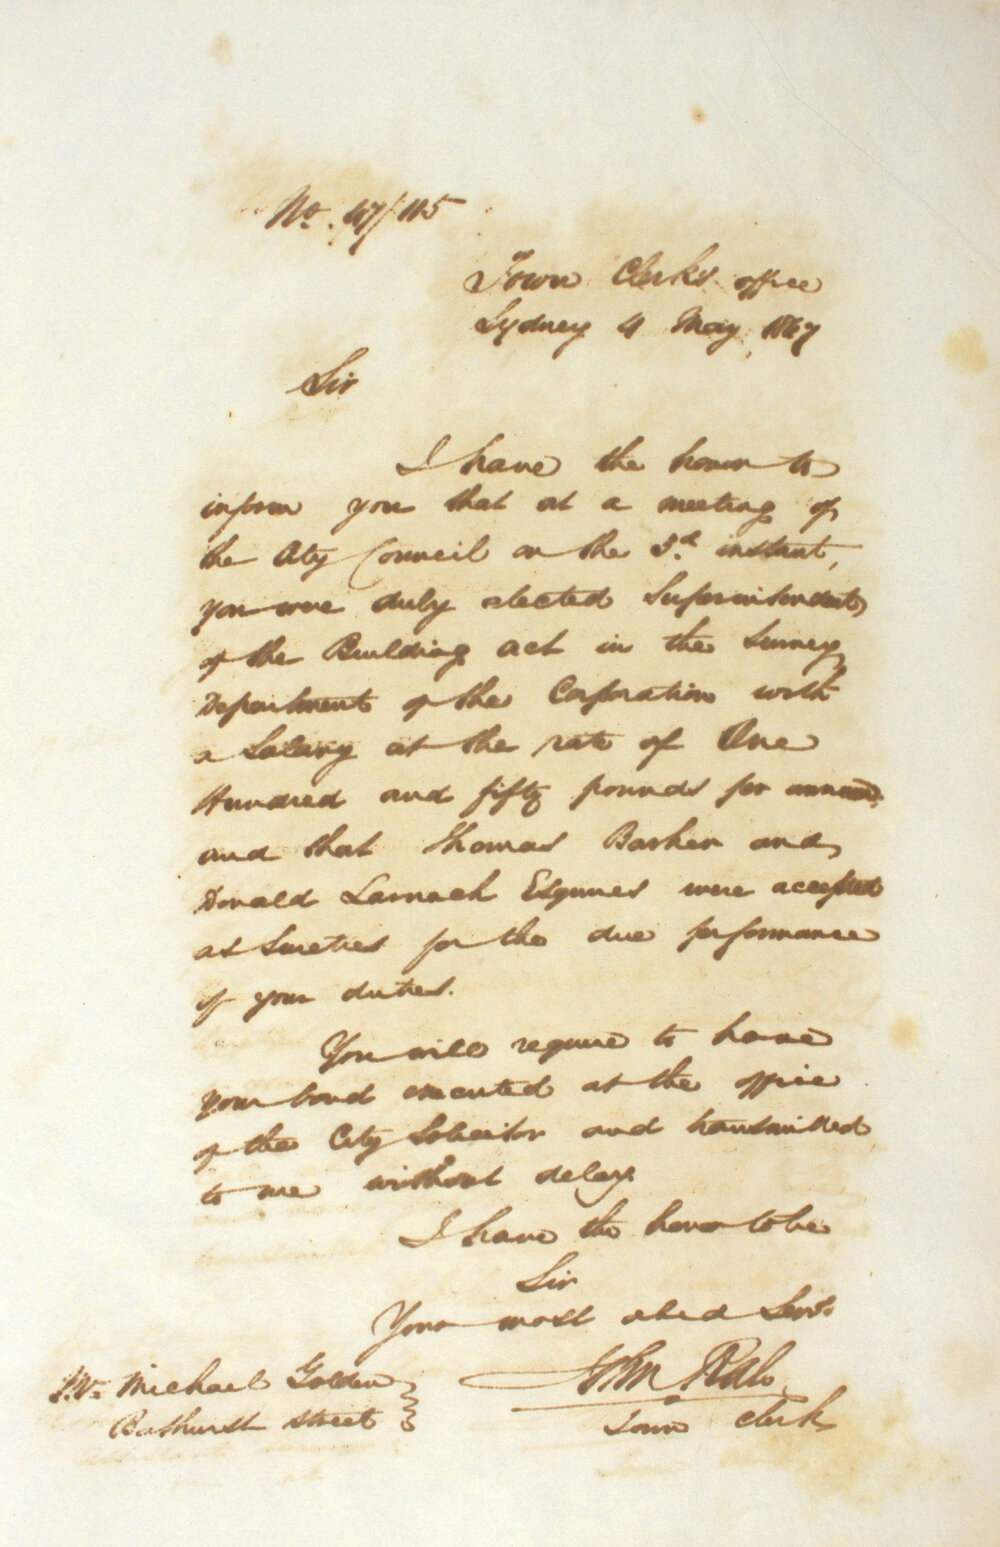 No. 47/115
Town Clerks office
Sydney 4 May 1847
Sir
I have the honor to
inform you that at a meeting of
the City Council on the 3.d instant,
you were duly elected Superintendent
of the Building act in the Survey
Department of the Corporation with
a Salary at the rate of One
Hundred and fifty pounds per annum
and that Thomas Barker and
Donald Larnach Esquires were accepted
as Sureties for the due performance
of your duties.
You will require to have
your bond executed at the office
of the City Solicitor and transmitted
to me without delay.
I have the honor to be
Sir
Your most obed Servt.
John Rae
Town Clerk
Mr Michael Golden
Bathurst Street